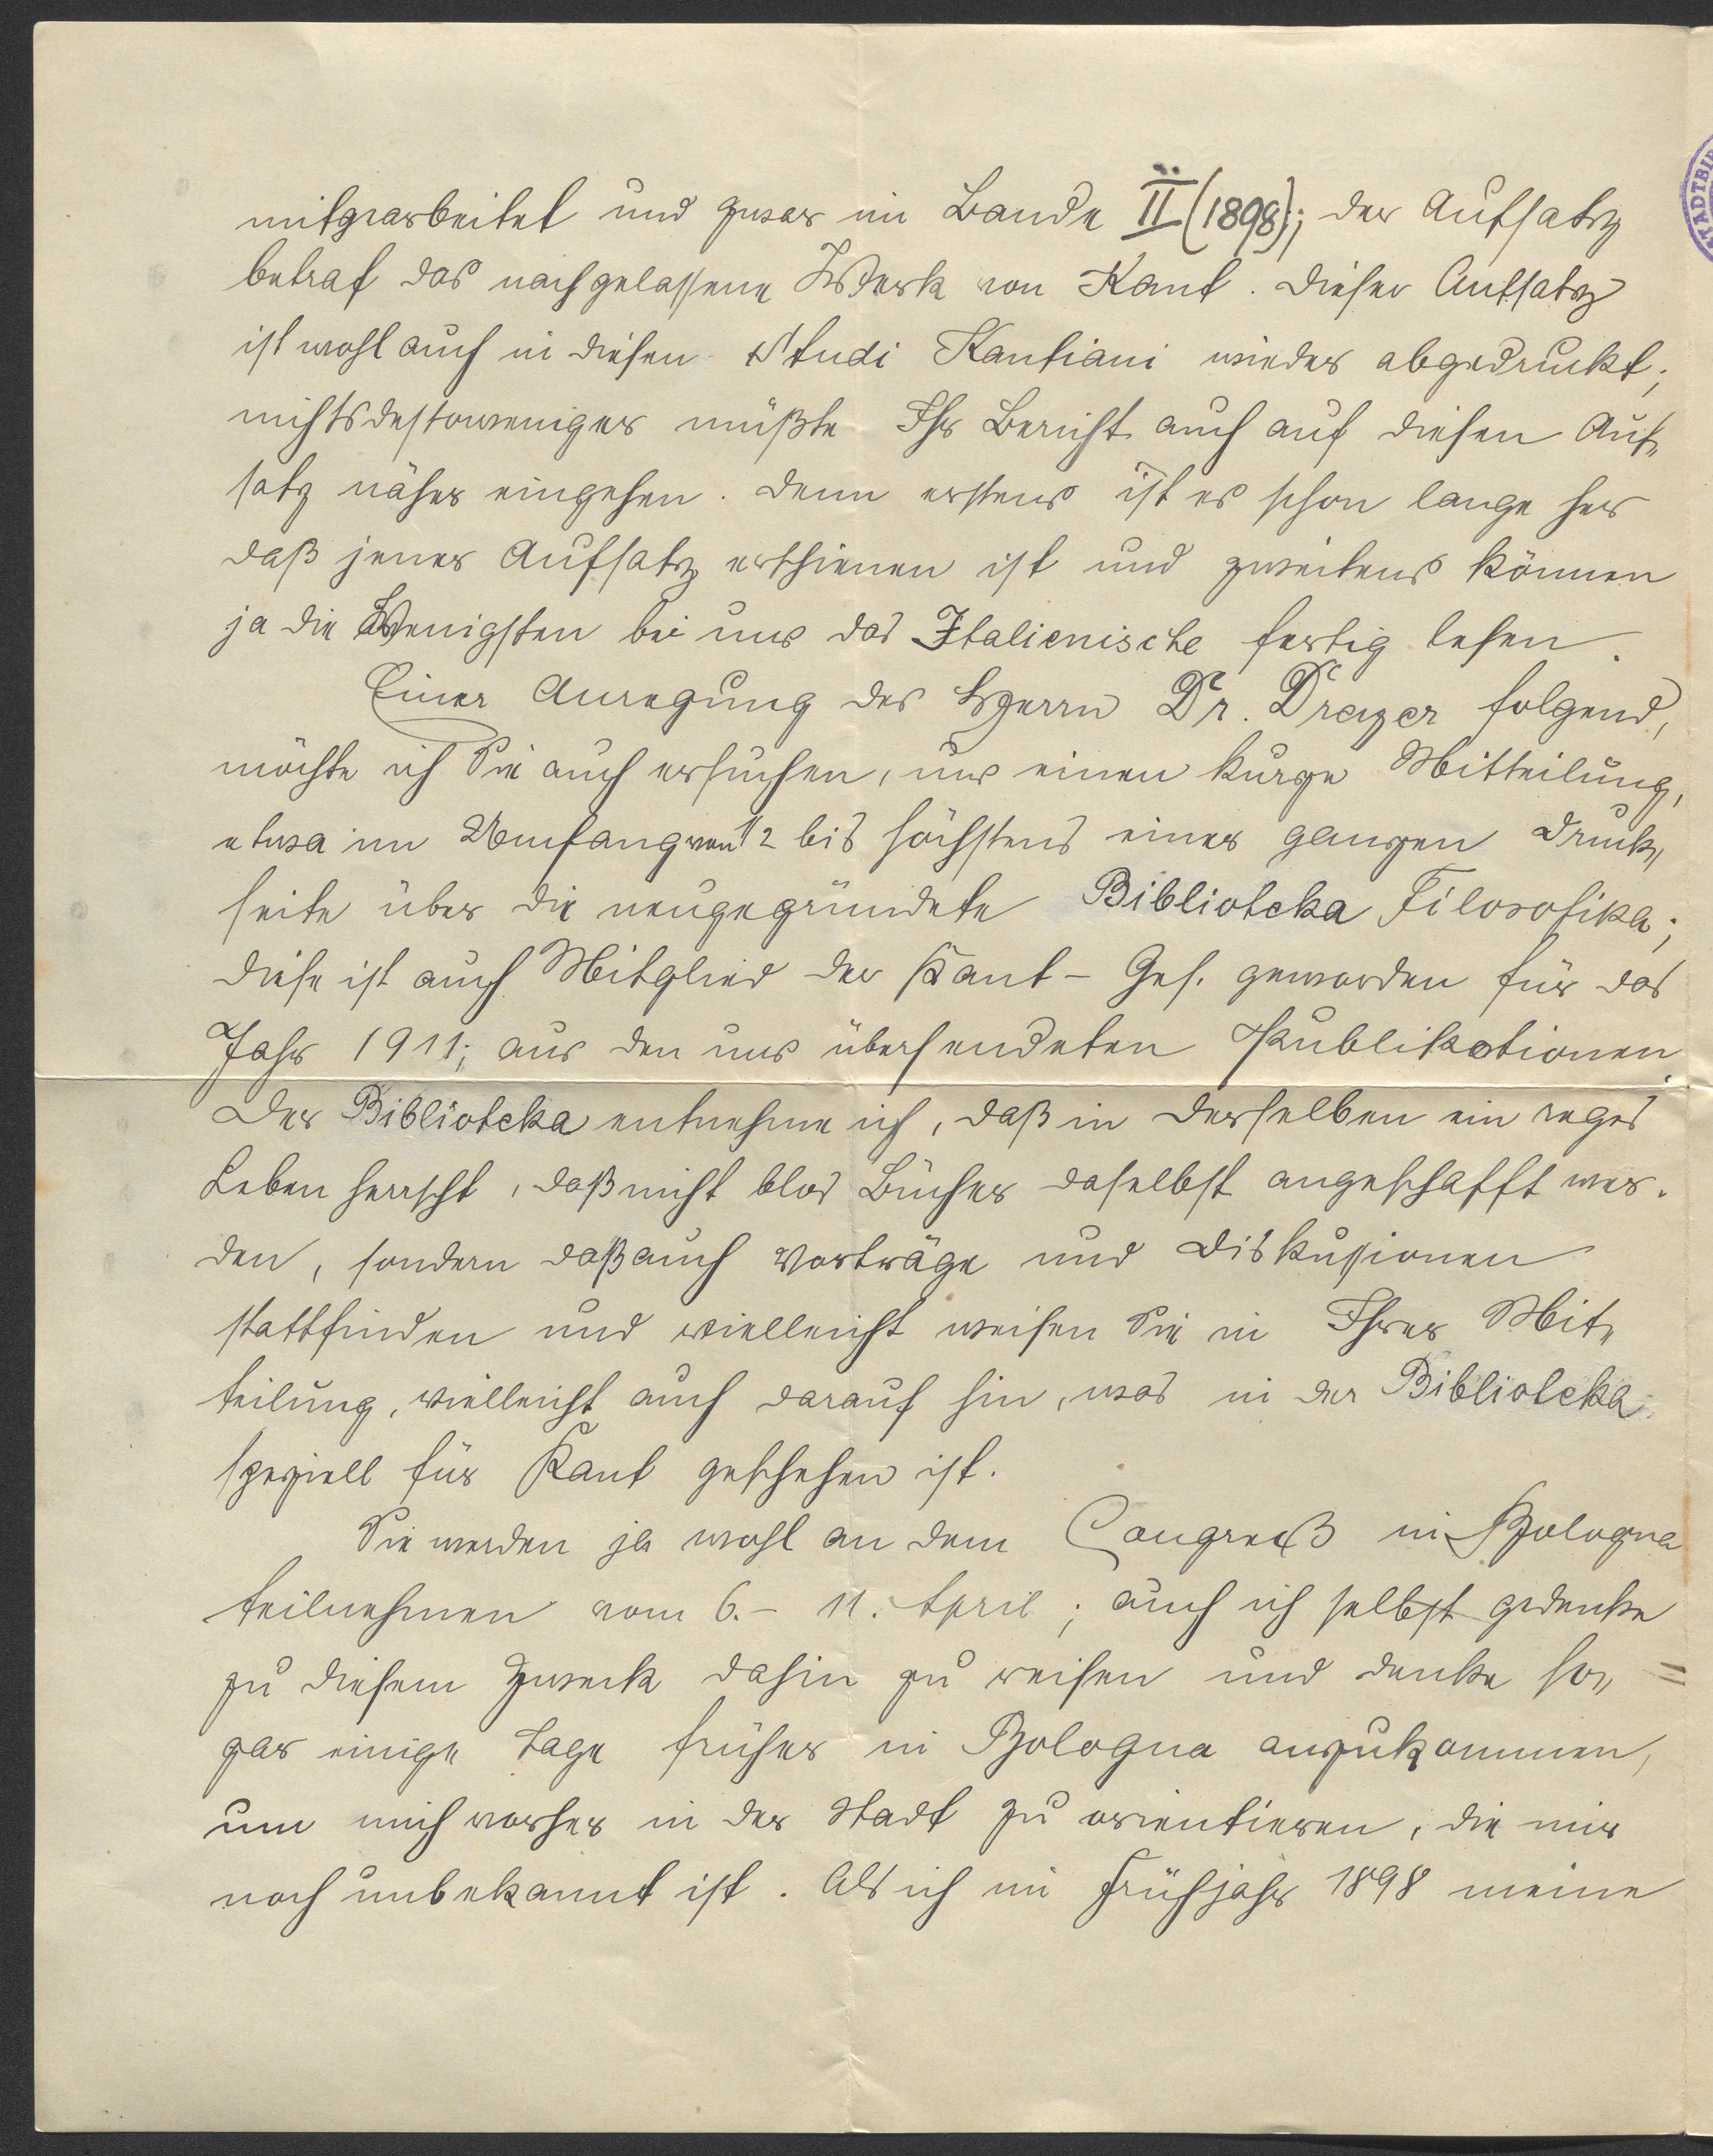 mitgearbeitet und zwar im Bande II (1898); der Aufsatz
betraf das nachgelassene Werk von Kant. Dieser Aufsatz
ist wohl auch in diesen Studi Kantiani wieder abgedruckt;
nichtsdestoweniger müßte Ihr Bericht auch auf diesen Auf-
satz näher eingehen. Denn erstens ist es schon lange her
daß jener Aufsatz erschienen ist und zweitens können
ja die Wenigsten bei uns das Italienische fertig lesen.
Einer Anregung des Herrn Dr. Dreyer folgend,
möchte ich Sie auch ersuchen, uns einen kurze Mitteilung,
etwa im Umfang von 1/2 bis höchstens einer ganzen Druck-
seite über die neugegründete Biblioteka Filosofika;
diese ist auch Mitglied der Kant-Ges. geworden für das
Jahr 1911; aus den uns übersendeten Publikationen
der Biblioteka entnehme ich, daß in derselben ein reges
Leben herrscht, daß nicht blos Bücher daselbst angeschafft wer-
den, sondern daß auch Vorträge und Diskussionen
stattfinden und vielleicht weisen Sie in Ihrer Mit-
teilung, vielleicht auch darauf hin, was in der Biblioteka
speziell für Kant geschehen ist.
Sie werden ja wohl an dem Congreß in Bologna
teilnehmen vom 6.- 11. April; auch ich selbst gedenke
zu diesem Zweck dahin zu reisen und denke so-
gar einige Tage früher in Bologna anzukommen,
um mich vorher in der Stadt zu orientieren, die mir
noch unbekannt ist. Als ich im Frühjahr 1898 meine